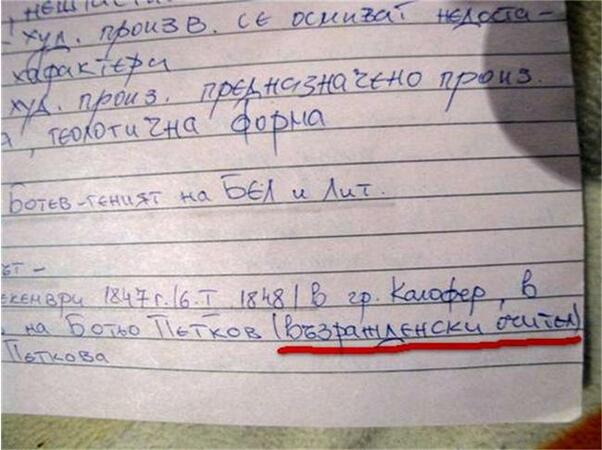 худ. произв. се осмиват недоста-
характери
худ. произ. предназначено произ.
, теолотична форма
Ботев-геният на БЕЛ и Лит.
1847г. /6. I 1848/ в гр. Калофер, в
на Ботьо Петков (възражденски очител)
Петкова